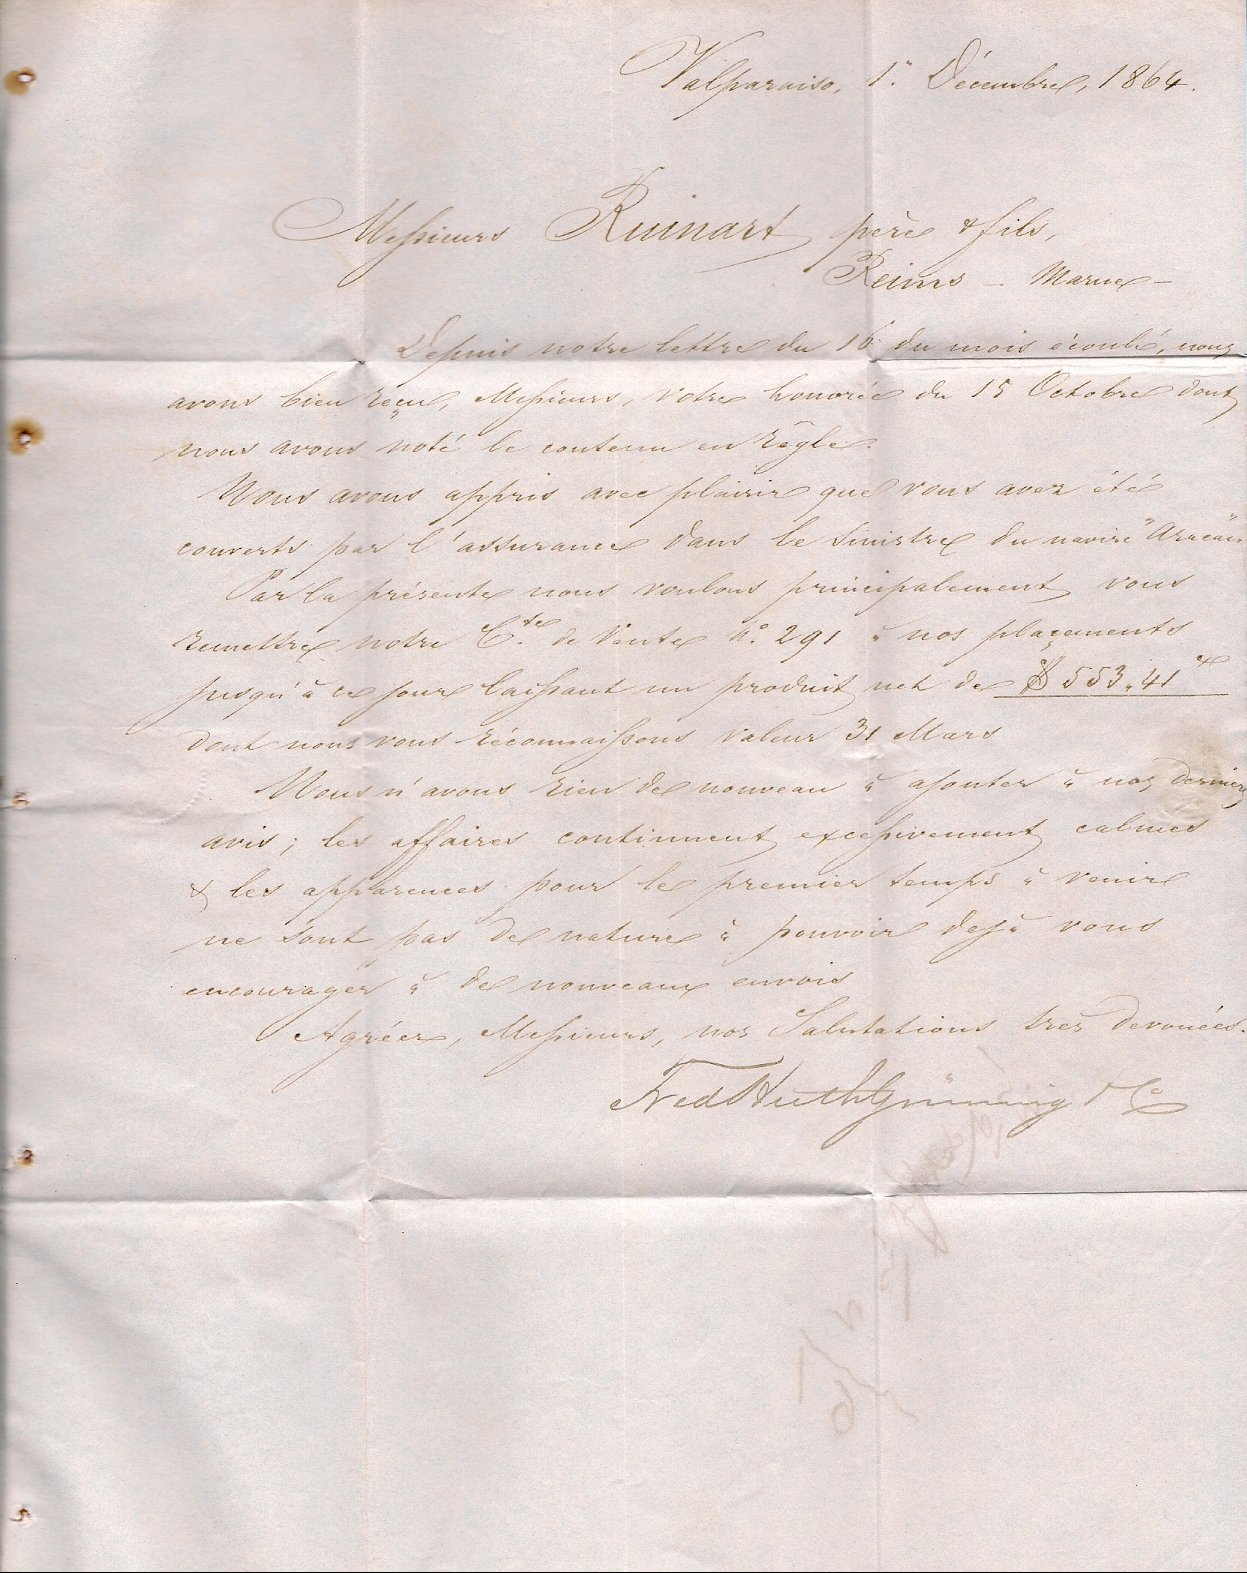 Valparaiso, 1° Décembre, 1864.
Messieurs Ruinart père & fils,
Reims – Marne –
Depuis notre lettre du 16 du mois écoulé, nous
avons bien reçu, Messieurs, votre honorée du 15 Octobre dont
nous avons noté le contenu en règle.
Nous avons appris avec plaisir que vous avez été
couverts par l'assurance dans le sinistre du navire "Araucan"
Par la présente nous voulons principalement vous
remettre notre C.te de Vente N° 291 à nos placements
jusqu'à ce jour laissant un produit net de $ 553.41
dont nous vous réconnaissons valeur 31 Mars
Nous n'avons rien de nouveau à ajouter à nos derniers
avis; les affaires continuent excessivement calmes
& les apparences pour le premier temps à venir
ne sont pas de nature à pouvoir dejà vous
encourager à de nouveaux envois
Agréez, Messieurs, nos Salutations très devouées.
Fred Huth Grüning & Co